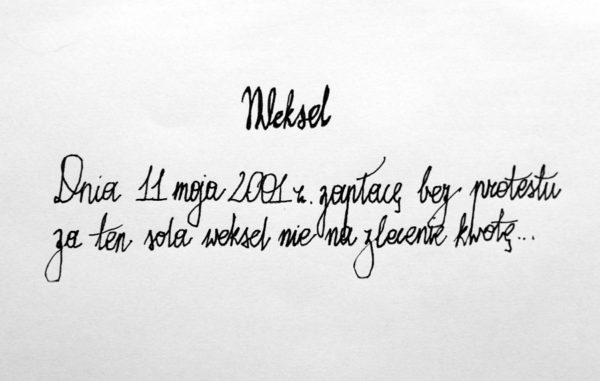 Weksel
Dnia 11 maja 2001 r. zapłacę bez protestu
za ten sola weksel nie na zlecenie kwotę...